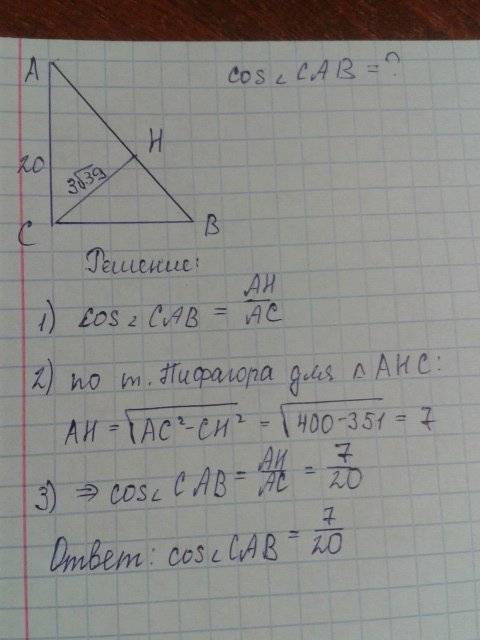 A
cos ∠ CAB = ?
H
20
3√39
C
B
Решение:
1) cos ∠ CAB = AH/AC
2) по т. Пифагора для △ AHC:
AH = √(AC² - CH²) = √(400 - 351) = 7
3) ⇒ cos ∠ CAB = AH/AC = 7/20
Ответ: cos ∠ CAB = 7/20